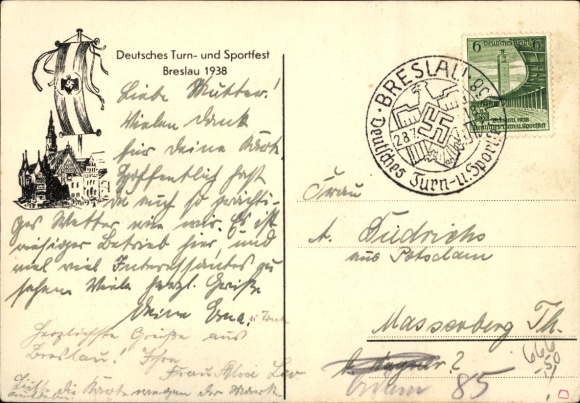 Deutsches Turn- und Sportfest
Breslau 1938
Liebe Mutter!
Vielen Dank
für Deine Karte
Hoffentlich hast
Du auch so prächti-
ges Wetter wie wir. Es ist
riesiger Betrieb hier, und
viel viel Interessantes zu
sehen. Viele herzl. Grüße
Deine Erna
Herzlichste Grüße aus
Breslau! Ihre
Frau
Bitte die Karte wegen der Marke
6 Deutsches Reich 6
Breslau 1938
Deutsches Turn- u. Sportfest
BRESLAU
28.7.38
Deutsches Turn-u.Sportfest
Frau
A. Diedrichs
aus Potsdam
Masserberg Th.
85